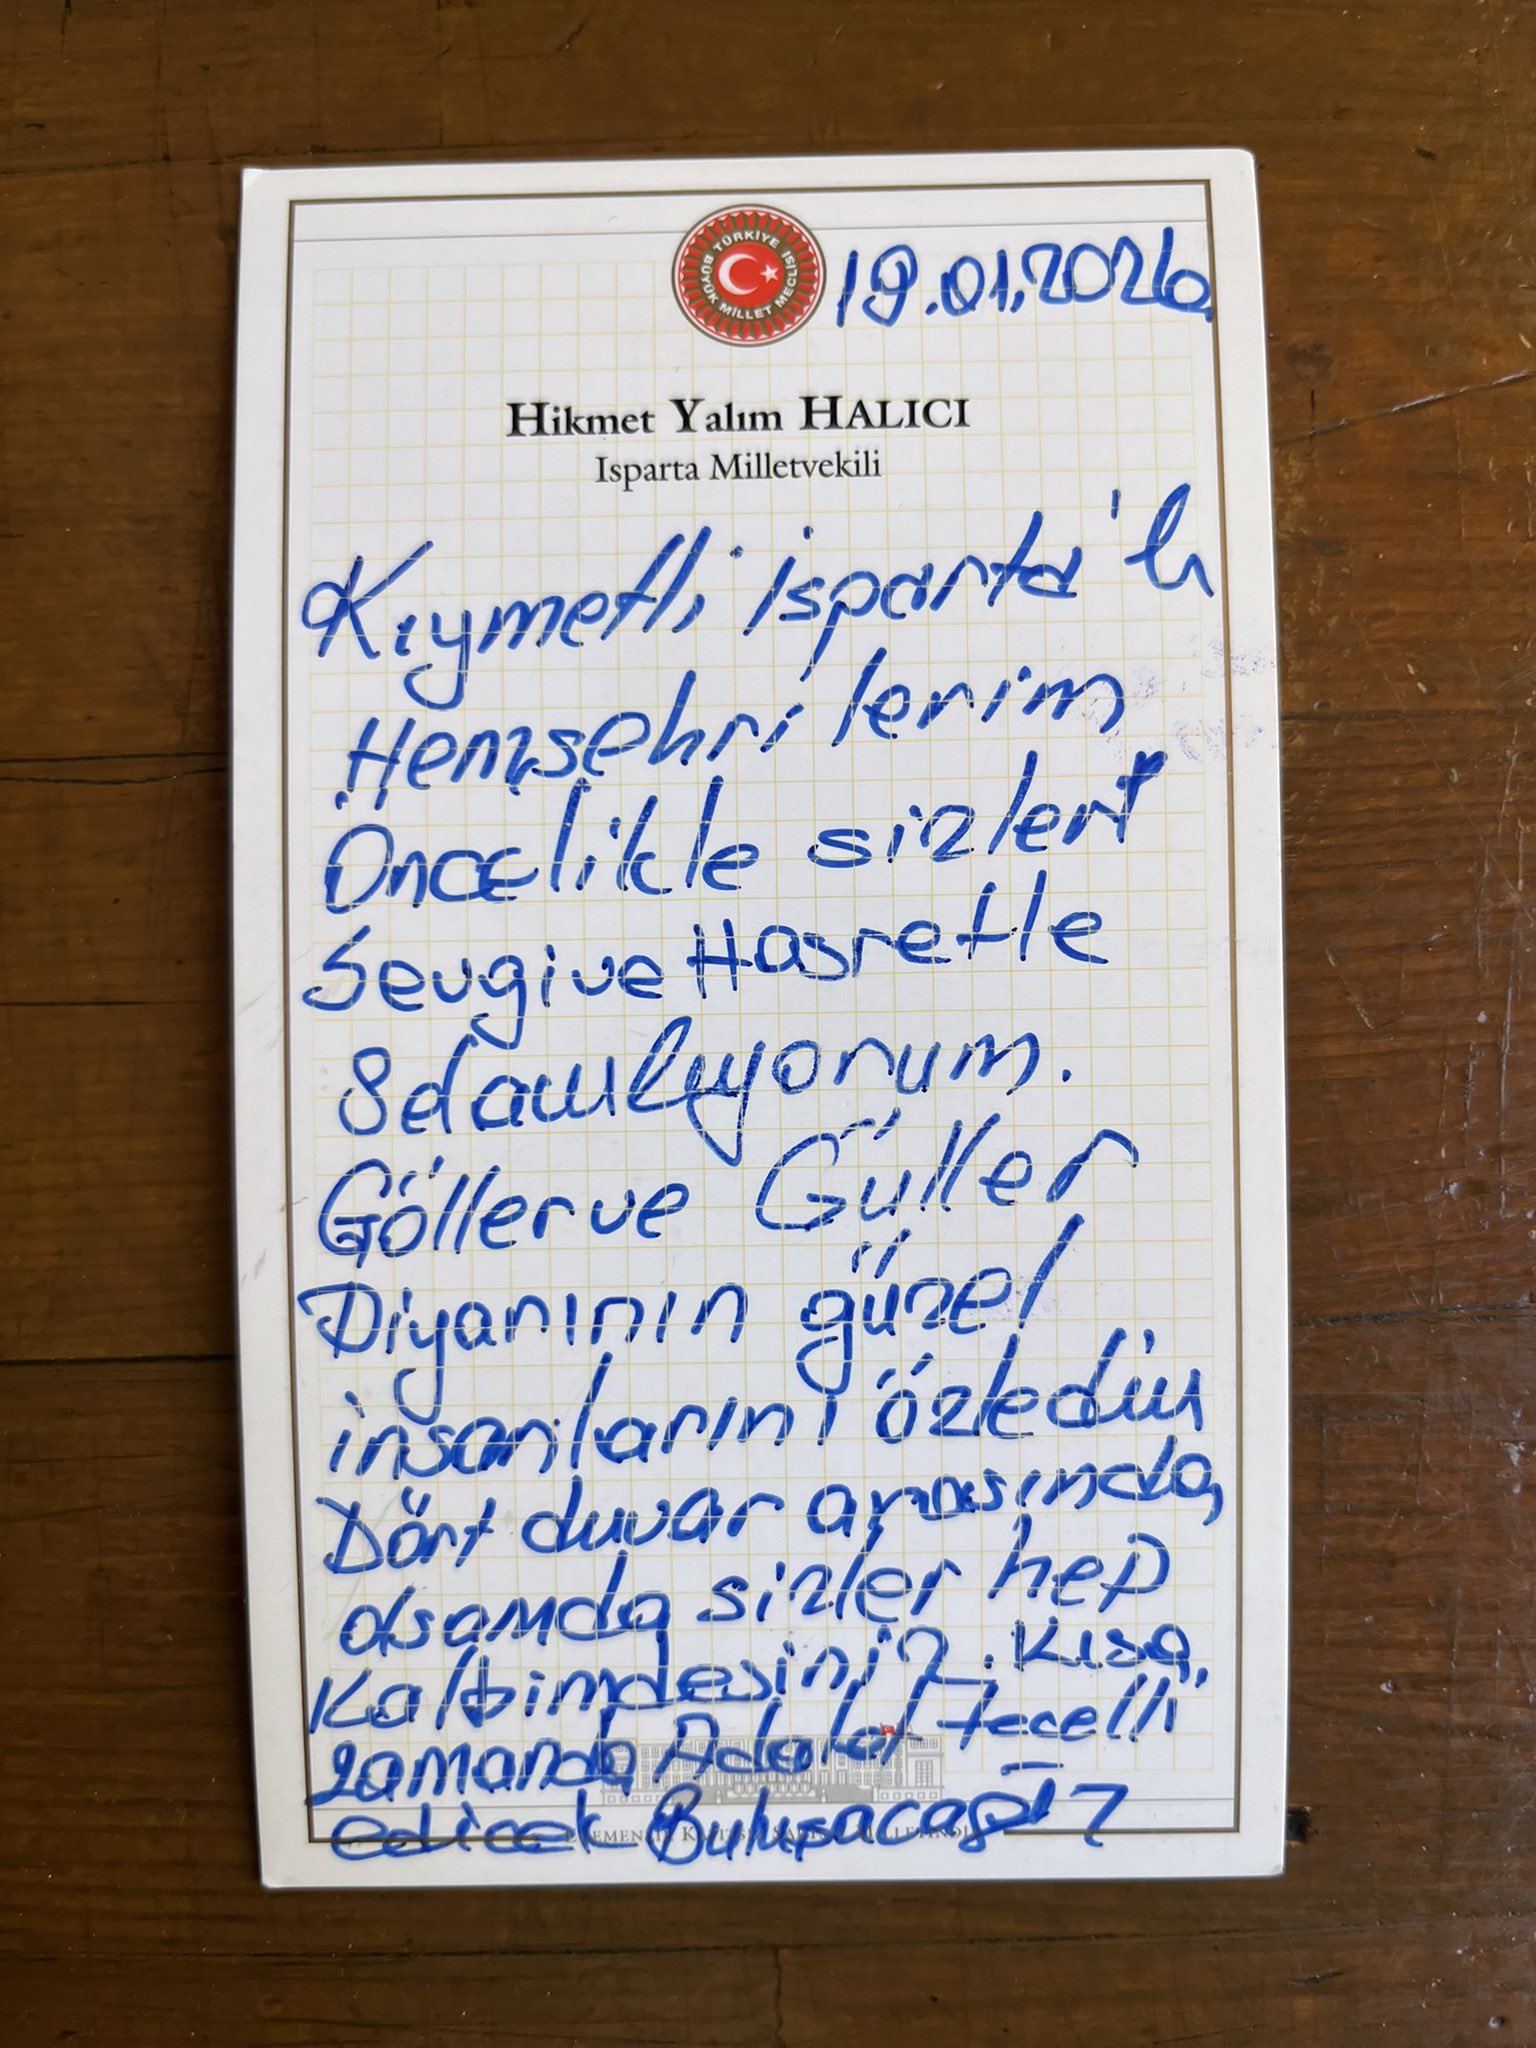 TÜRKİYE BÜYÜK MİLLET MECLİSİ
19.01.2026
Hikmet Yalım HALICI
Isparta Milletvekili
Kıymetli isparta'lı
Hemşehrilerim
Öncelikle sizleri
Sevgi ve Hasretle
Göller ve Güller
Diyarının güzel
insanlarını özledim
Dört duvar arasında
olsamda sizler hep
Kalbimdesiniz. Kısa
zamanda Adalet tecelli
edicek Buluşacağız